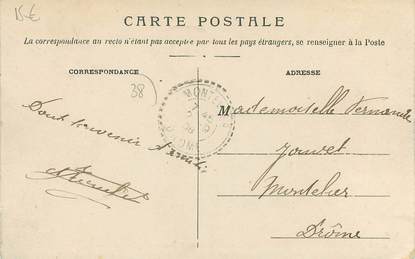 15 €
CARTE POSTALE
La correspondance au recto n'étant pas acceptée par tous les pays étrangers, se renseigner à la Poste
CORRESPONDANCE
ADRESSE
38
MONT
Mademoiselle Fernande
Jouvet
Montelier
Drôme
souvenir